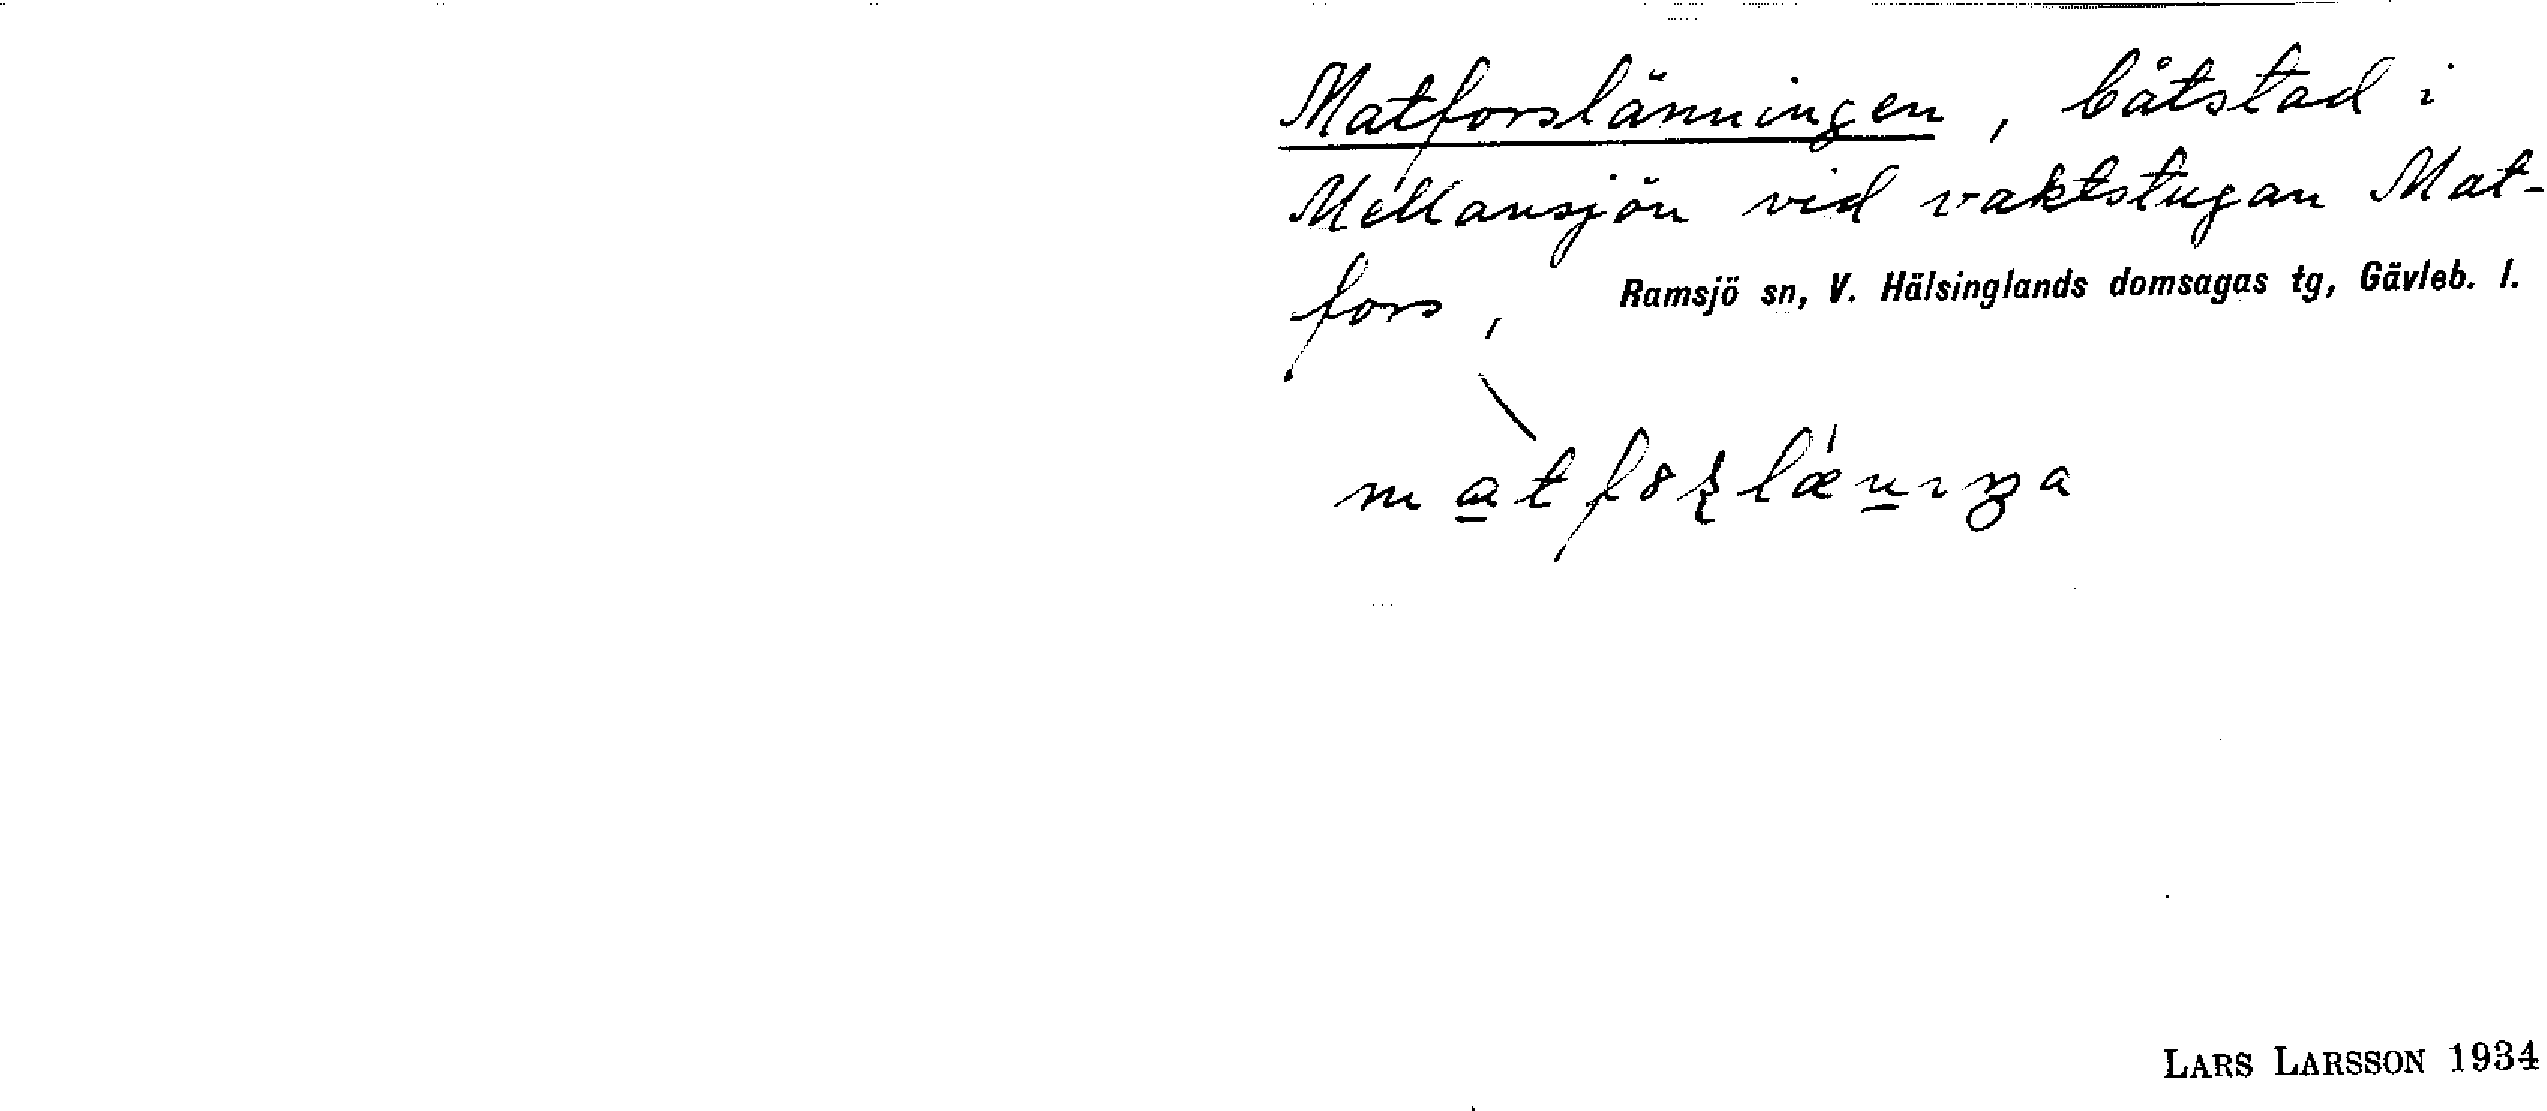 Matforslänningen, båtstad i
Mellansjön vid vaktstugan Mat-
fors, Ramsjö sn, V. Hälsinglands domsagas tg, Gävleb. l.
LARS LARSSON 1934